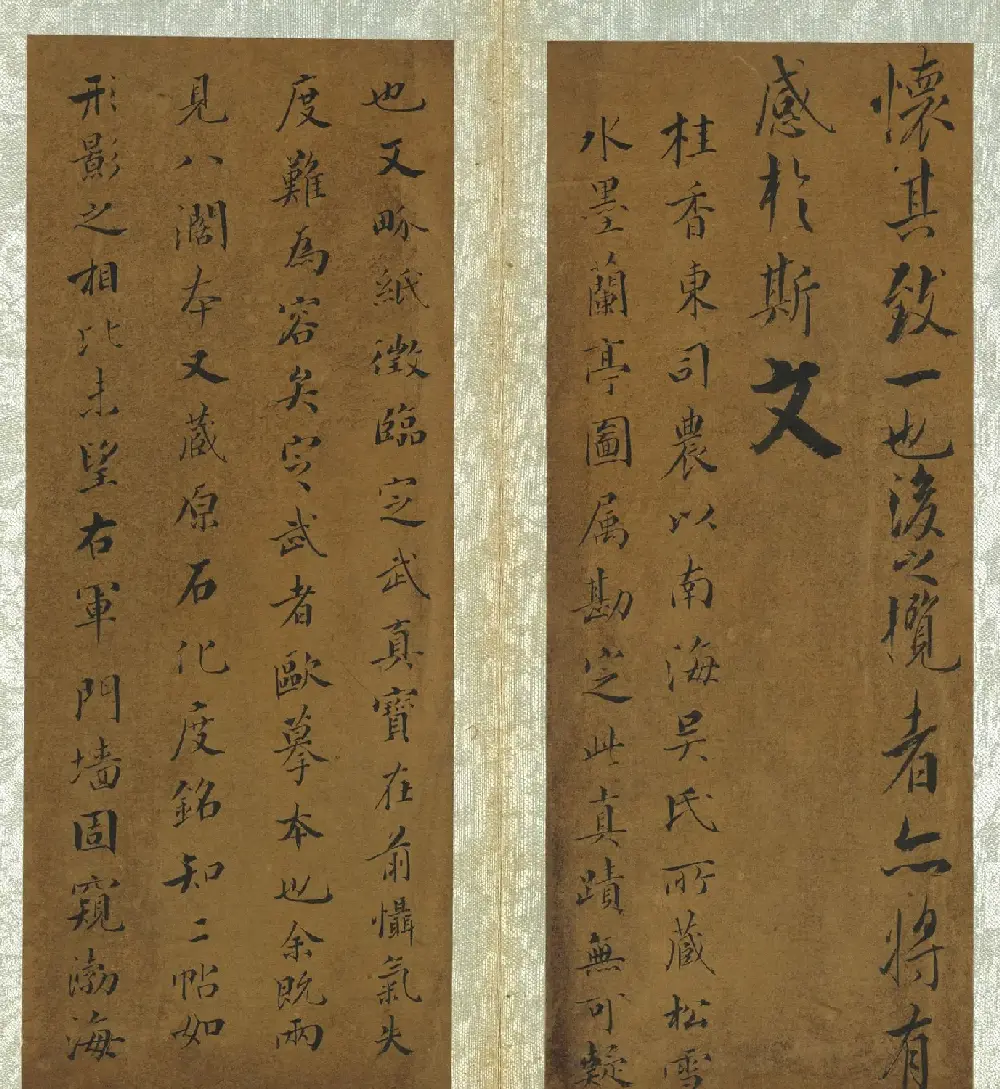 懷其致一也後之攬者亦將有
感於斯文
桂香東司農以南海吴氏所藏松雪
水墨蘭亭圖属勘定此真蹟無可疑
也又𠭇紙徵臨定武真寶在前懾氣失
度難為容矣定武者歐摹本也余既兩
見八闊本又藏原石化度銘知二帖如
形影之相比未望右軍門墙固窺渤海